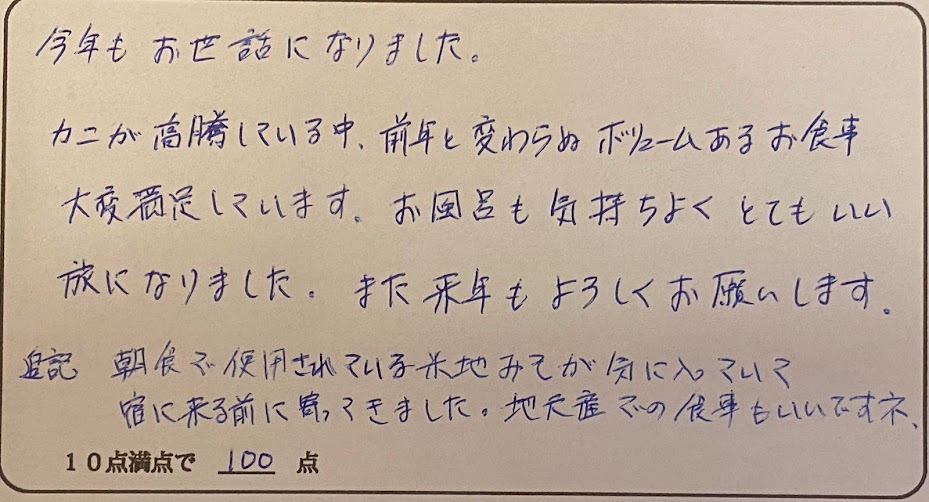 今年も お世話になりました。
カニが高騰している中、前年と変わらぬ ボリュームあるお食事
大変満足しています。お風呂も気持ちよく とてもいい
旅になりました。また来年もよろしくお願いします。
追記 朝食で使用されている米地みそが気に入っていて
宿に来る前に寄ってきました。地元産での食事もいいですネ、
10点満点で 100 点